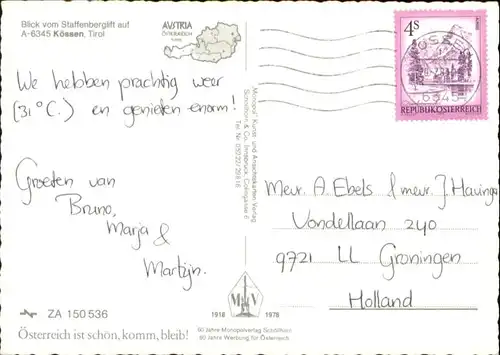 Blick vom Staffenberglift auf
A-6345 Kössen, Tirol
AUSTRIA
ÖSTERREICH
We hebben prachtig weer
(31°C.) en genieten enorm!
Groeten van
Bruno,
Marja &
Martijn.
ZA 150 536
Österreich ist schön, komm, bleib!
"Monopol" Kunst- und Ansichtskarten Verlag
Schöllhorn & Co. Innsbruck, Colingasse 6
1918 1978
60 Jahre Monopolverlag Schöllhorn
60 Jahre Werbung für Österreich
4S
REPUBLIK ÖSTERREICH
Mevr. A. Ebels & mevr. J. Havinga
Vondellaan 240
9721 LL Groningen
Holland